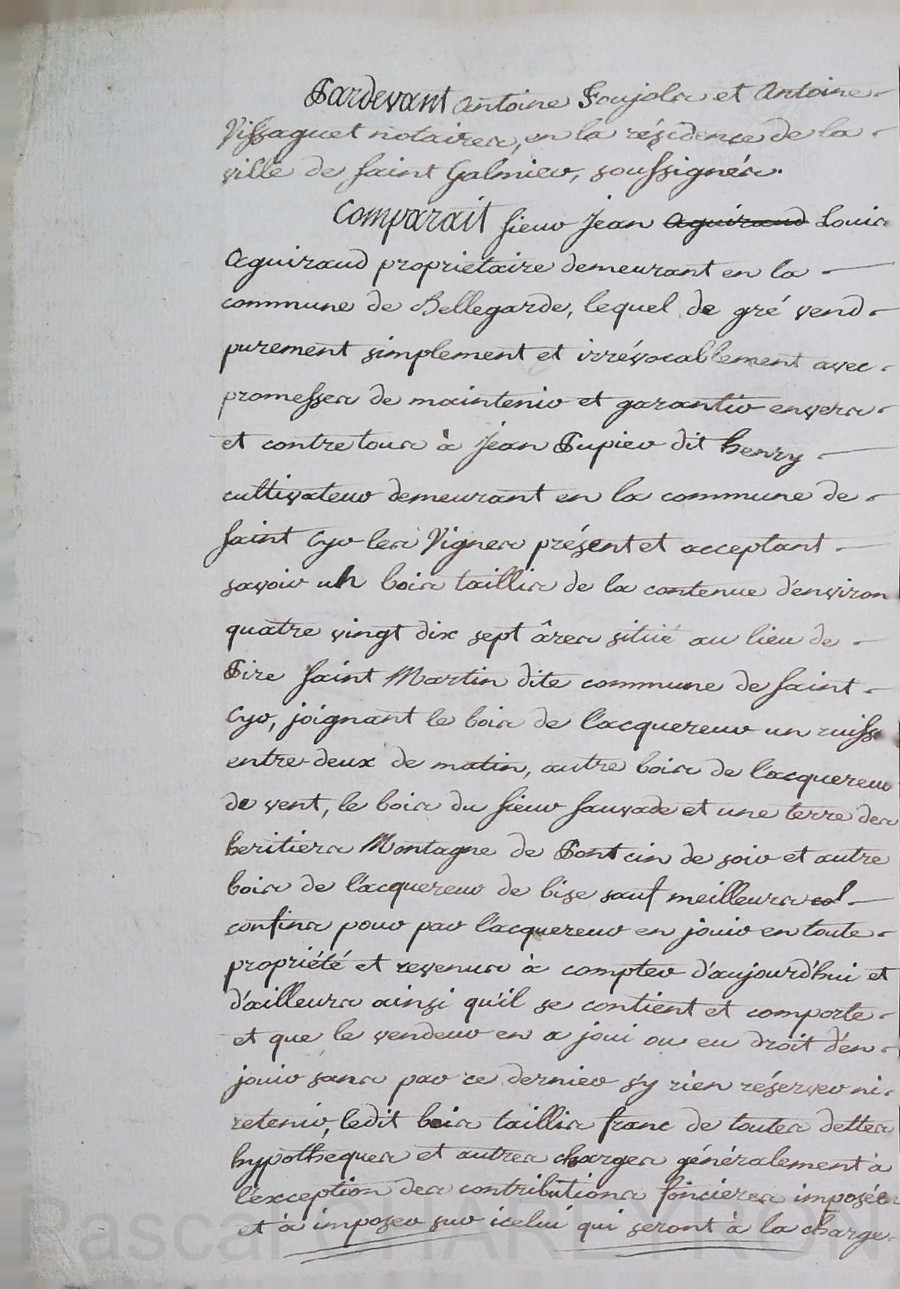 Pardevant Antoine Soujols et Antoine
Vissaguet notaires, en la résidence de la
ville de Saint Galmier, soussignés.
Comparait sieur Jean Aguiraud Louis
Aguiraud proprietaire demeurant en la
commune de Bellegarde, lequel de gré vend
purement simplement et irrévocablement avec
promesses de maintenir et garantir envers
et contre tous à Jean Pupier dit henry
cultivateur demeurant en la commune de
Saint Cyr les Vignes présent et acceptant
savoir un bois taillis de la contenue d'environ
quatre vingt dix sept âres situé au lieu de
Pire Saint Martin dite commune de Saint
Cyr, joignant le bois de l'acquereur un ruiss
entre deux de matin, autre bois de l'acquereur
de vent, le bois du sieur Sauvade et une terre des
heritiers Montagne de Pontcin de soir et autre
bois de l'acquereur de bise sauf meilleurs
confins pour par l'acquereur en jouir en toute
propriété et revenus à compter d'aujourd'hui et
d'ailleurs ainsi qu'il se contient et comporte
et que le vendeur en a joui ou eu droit d'en
jouir sans par ce dernier s'y rien réserver ni
retenir, ledit bois taillis franc de toutes dettes
hypothèques et autres charges généralement à
l'exception des contributions foncières imposées
et à imposer sur icelui qui seront à la charge
Pascal CHAREYRON